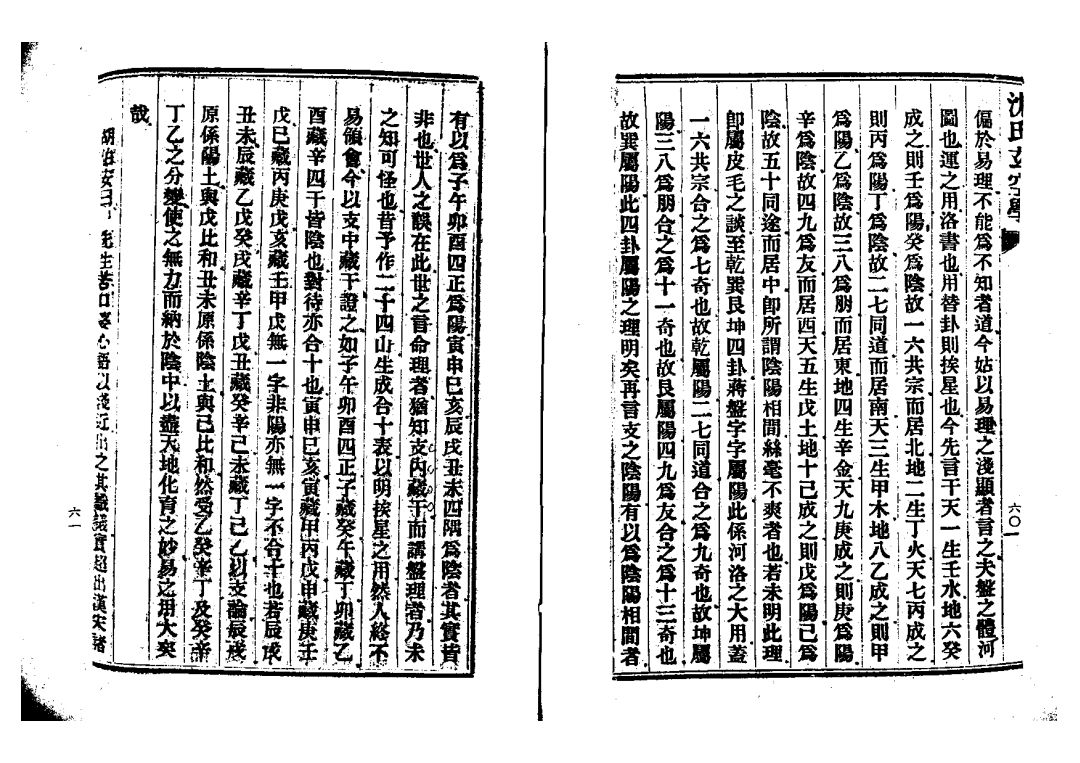 沈氏玄空學
六〇
偏於易理不能爲不知者道今姑以易理之淺顯者言之夫盤之體河
圖也運之用洛書也用替卦則挨星也今先言干天一生壬水地六癸
成之則壬爲陽癸爲陰故一六共宗而居北地二生丁火天七丙成之
則丙爲陽丁爲陰故二七同道而居南天三生甲木地八乙成之則甲
爲陽乙爲陰故三八爲朋而居東地四生辛金天九庚成之則庚爲陽
辛爲陰故四九爲友而居西天五生戊土地十己成之則戊爲陽己爲
陰故五十同途而居中卽所謂陰陽相間絲毫不爽者也若未明此理
卽屬皮毛之談至乾巽艮坤四卦蔣盤字字屬陽此係河洛之大用蓋
一六共宗合之爲七奇也故乾屬陽二七同道合之爲九奇也故坤屬
陽三八爲朋合之爲十一奇也故艮屬陽四九爲友合之爲十三奇也
故巽屬陽此四卦屬陽之理明矣再言支之陰陽有以爲陰陽相間者
有以爲子午卯酉四正爲陽寅申巳亥辰戌丑未四隅爲陰者其實皆
非也世人之誤在此世之言命理者猶知支內藏干而講盤理者乃未
之知可怪也昔予作二十四山生成合十表以明挨星之用然人終不
易領會今以支中藏干證之如子午卯酉四正子藏癸午藏丁卯藏乙
酉藏辛四干皆陰也對待亦合十也寅申巳亥寅藏甲丙戊申藏庚壬
戊巳藏丙庚戊亥藏壬甲戊無一字非陽亦無一字不合十也若辰戌
丑未辰藏乙戊癸戌藏辛丁戊丑藏癸辛己未藏丁己乙以支論辰戌
原係陽土與戊比和丑未原係陰土與己比和然受乙癸辛丁及癸辛
丁乙之分變使之無力而納於陰中以盡天地化育之妙易之用大矣
哉
胡伯安曰先生苦口婆心語以淺近出之其識議實超出漢宋諸
六一